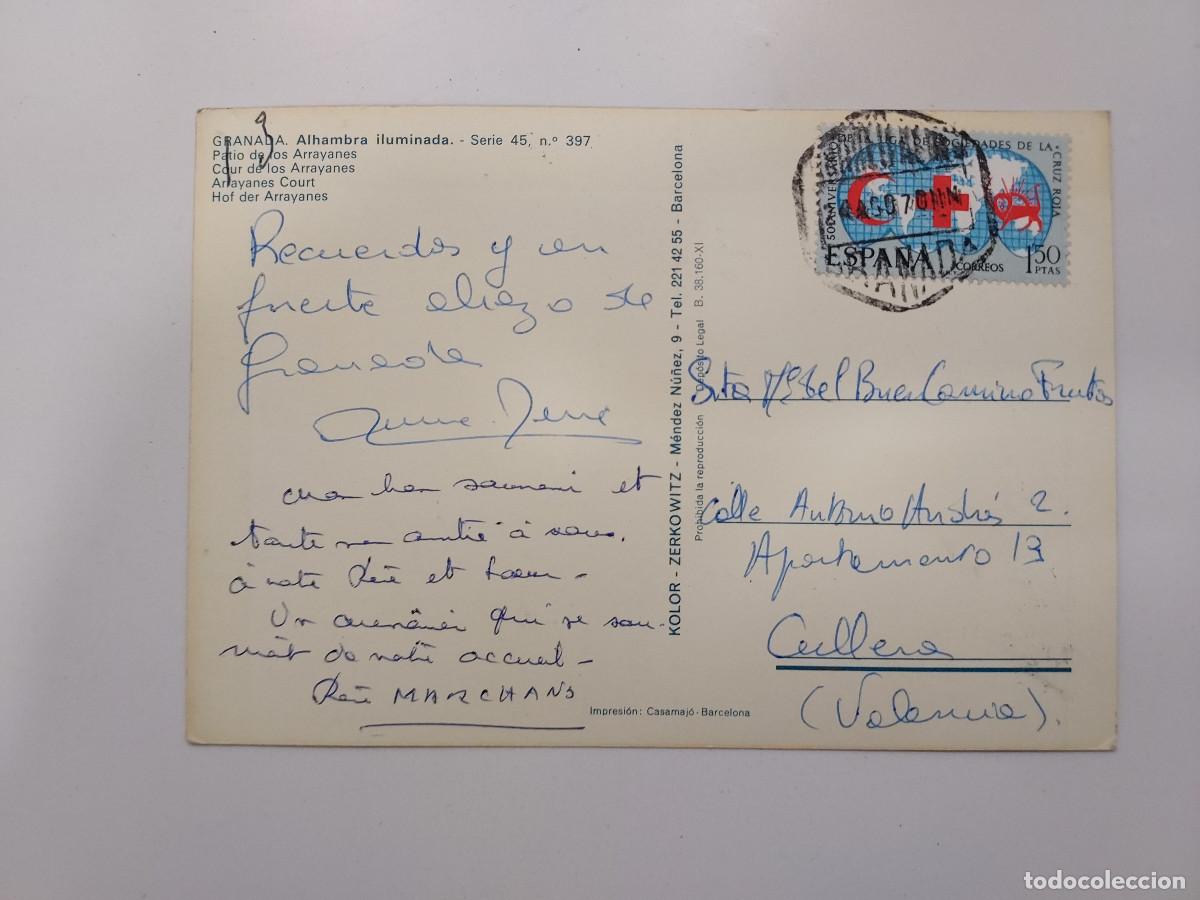 13
GRANADA. Alhambra iluminada. - Serie 45, n.º 397
Patio de los Arrayanes
Cour de los Arrayanes
Arrayanes Court
Hof der Arrayanes
Recuerdos y un
fuerte abrazo de
Granada
mon bon souvenir et
toute mon amitié à vous,
à votre Père et soeur -
Un ouvrier qui se sou-
vient de votre accueil -
René MARCHANS
KOLOR - ZERKOWITZ - Méndez Núñez, 9 - Tel. 221 42 55 - Barcelona
Prohibida la reproducción Depósito Legal B. 38.160-XI
Impresión: Casamajó-Barcelona
50 ANIVERSARIO DE LA LIGA DE SOCIEDADES DE LA CRUZ ROJA
ESPAÑA CORREOS 1,50 PTAS
AGO 70
GRANADA
Srta Mª Isabel Buen Camino Frutos
Calle Antonio Andrés 2.
Apartamento 13
Cullera
(Valencia).
todocoleccion